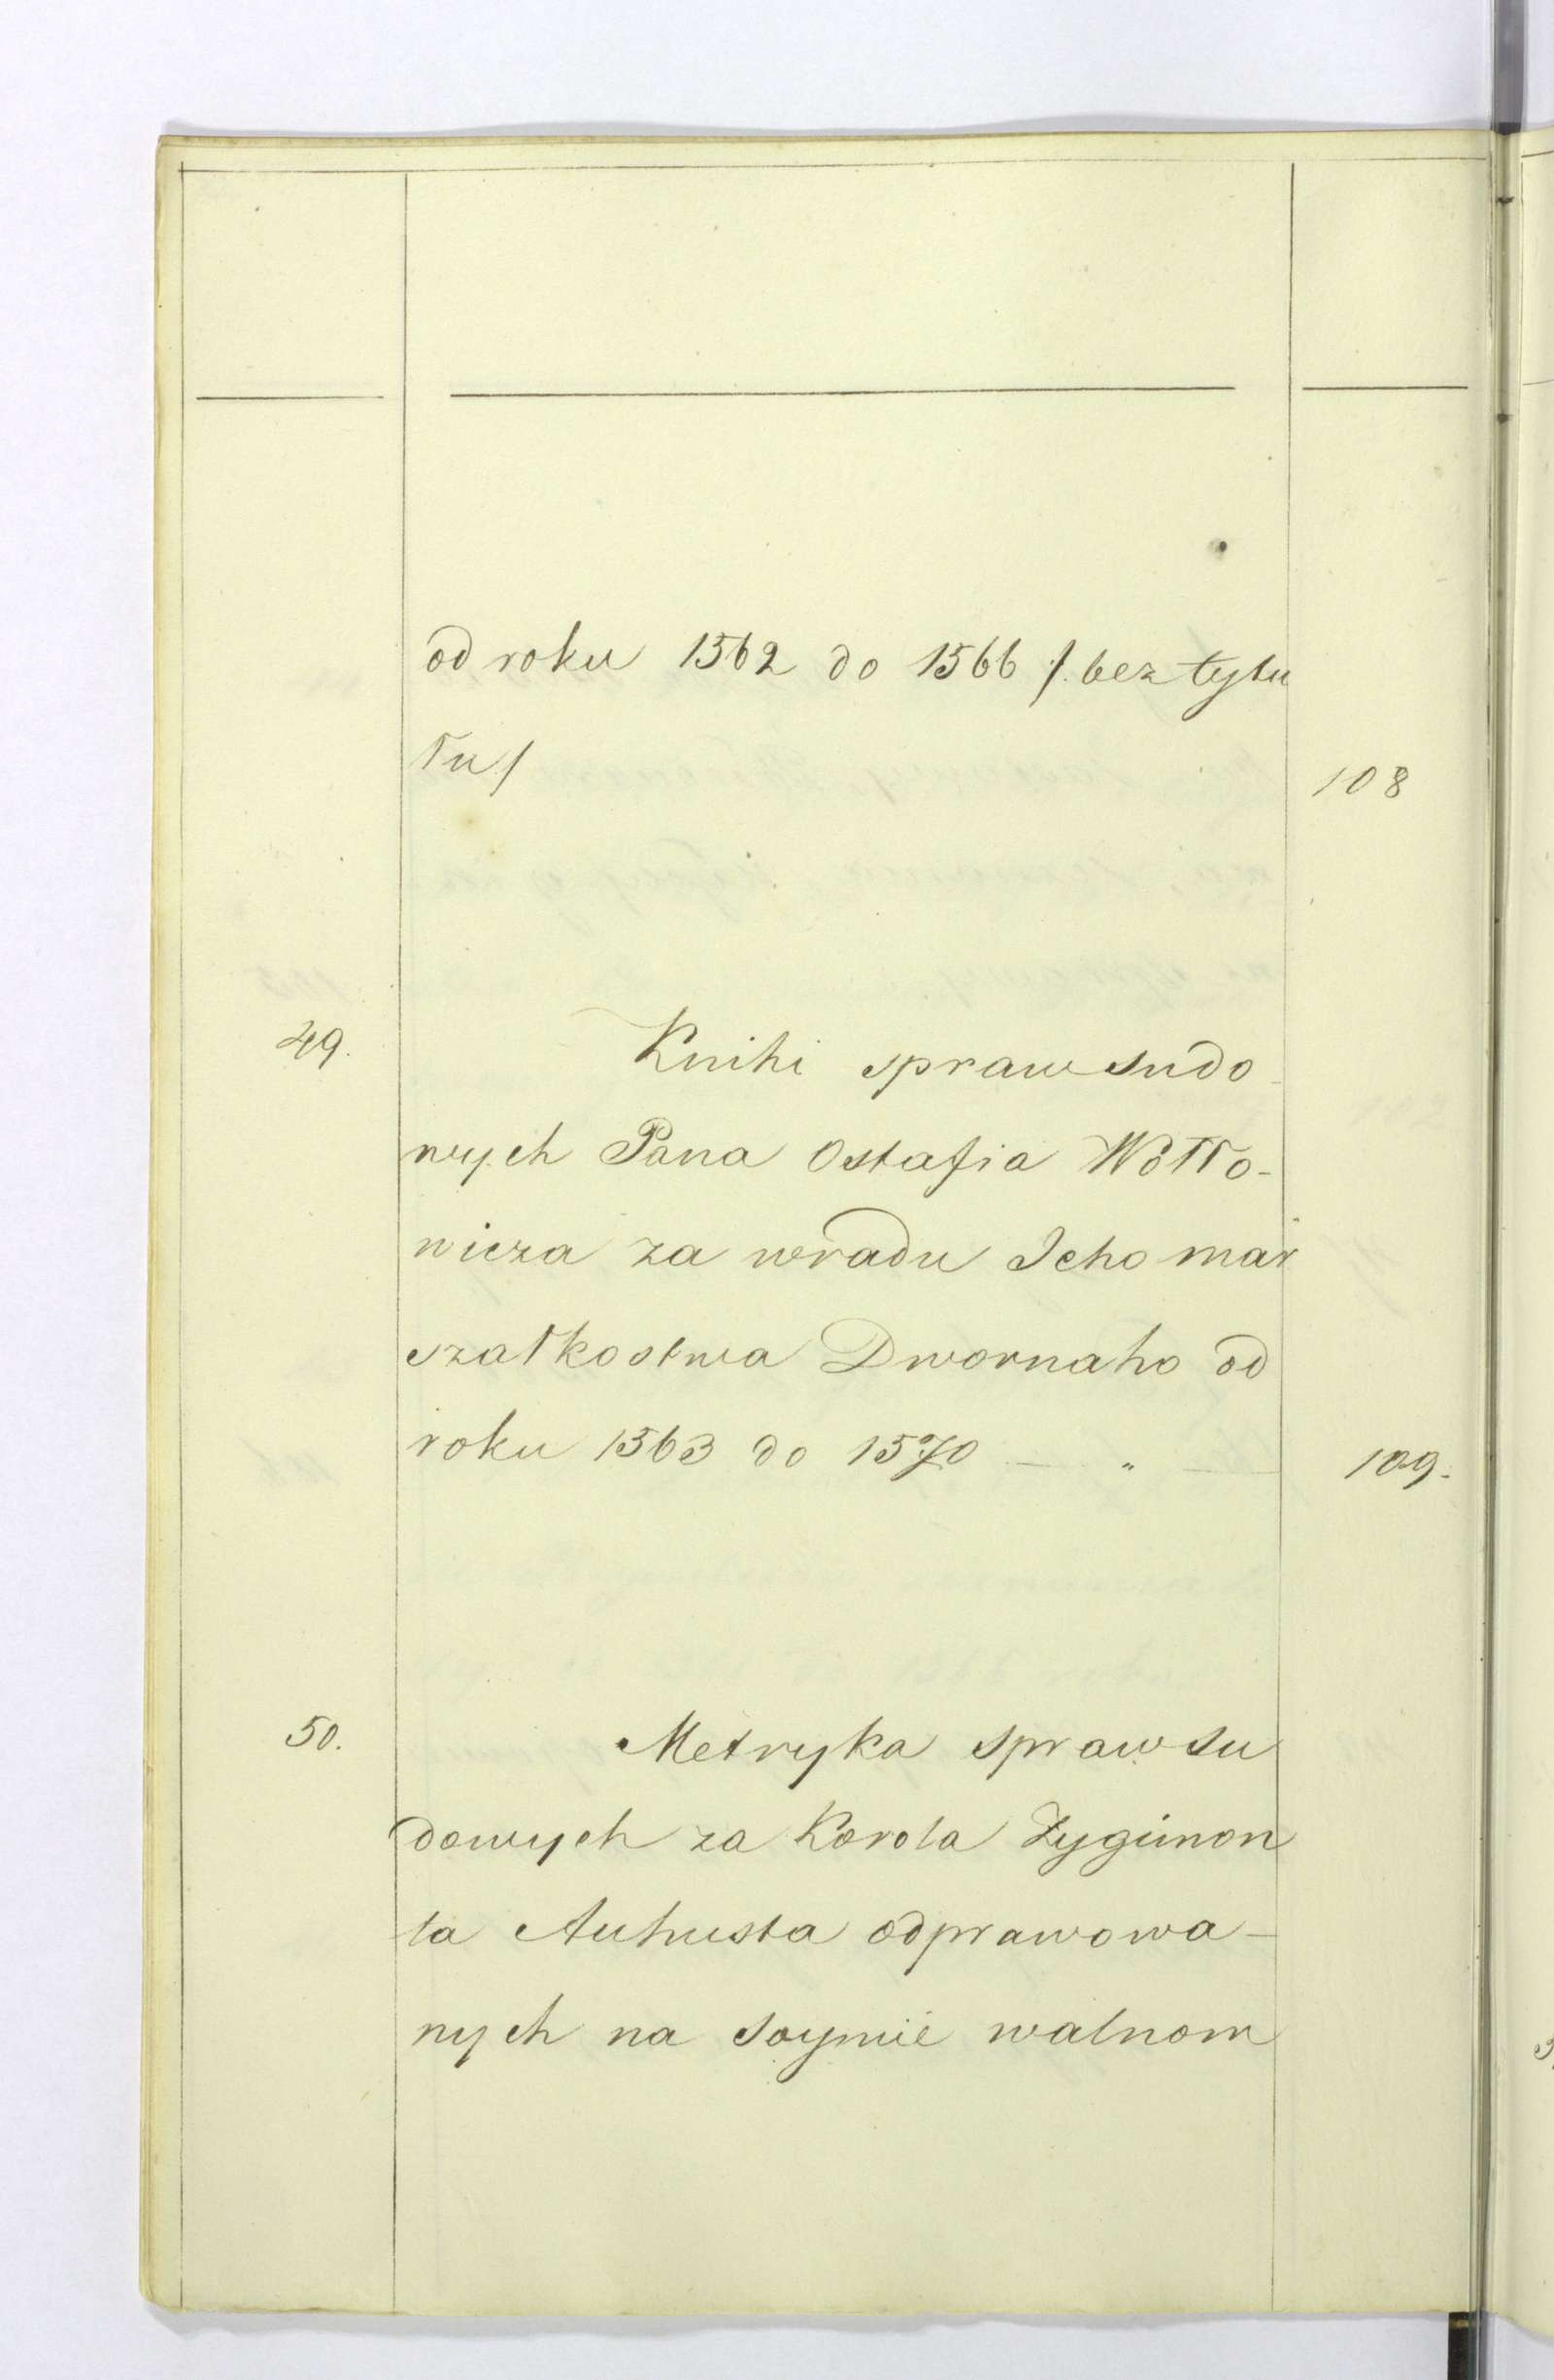 od roku 1562 do 1566 /. bez tytu
łu/
108
49.
Knihi spraw sudo
wych Pana Ostafia Wołło-
wicza za wradu Jeho mar
szałkostwa Dwornaho od
roku 1563 do 1570 — " —
109.
50.
Metryka spraw su
dowych za Korola Zygimon
ta Auhusta odprawowa-
nych na soymie walnom